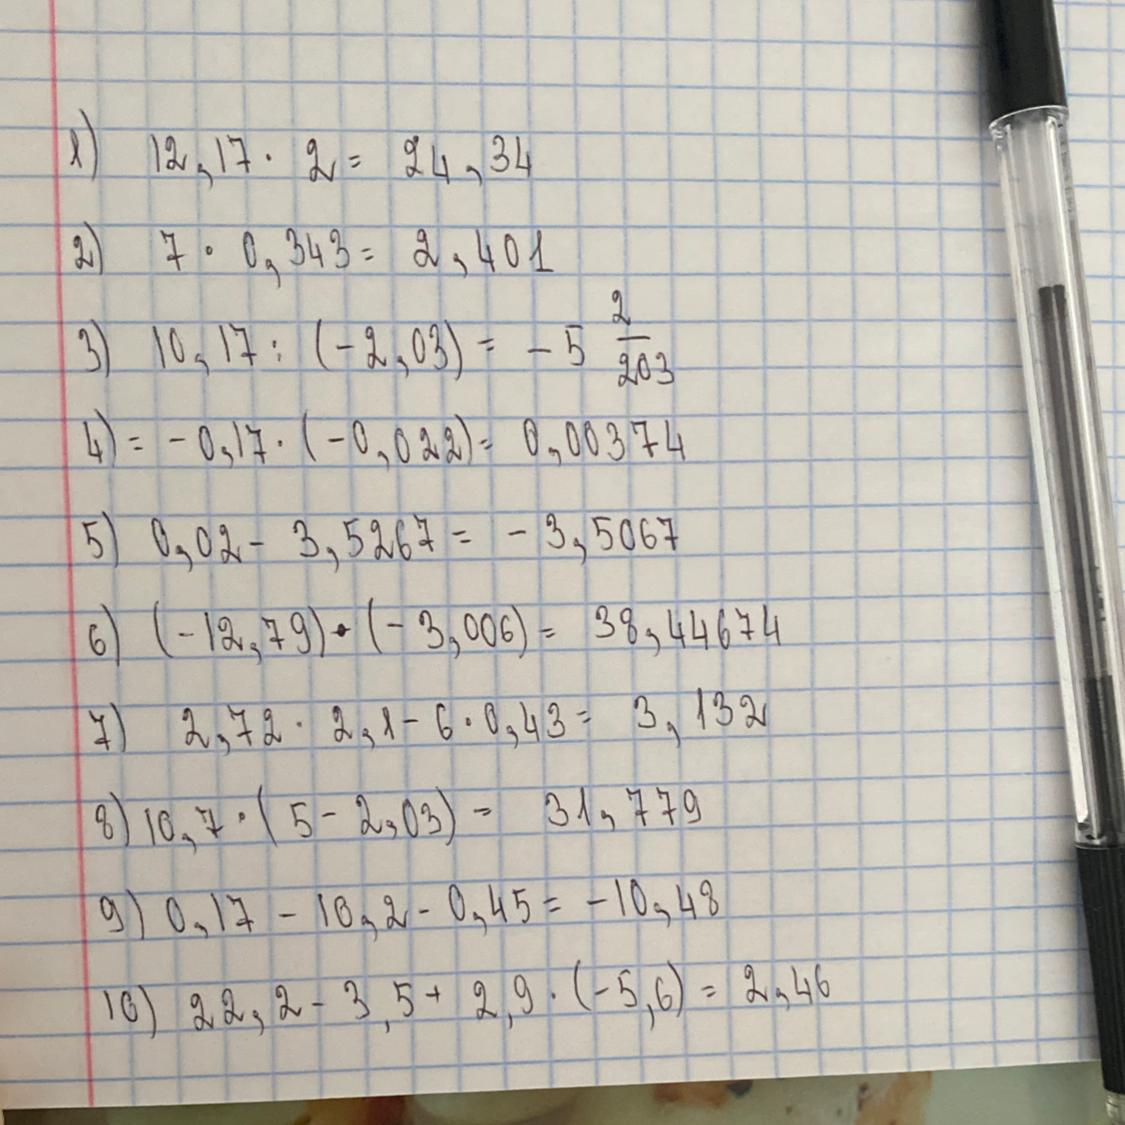 1) 12,17 · 2 = 24,34
2) 7 · 0,343 = 2,401
3) 10,17 : (-2,03) = -5 2/203
4) = -0,17 · (-0,022) = 0,00374
5) 0,02 - 3,5267 = -3,5067
6) (-12,79) · (-3,006) = 38,44674
7) 2,72 · 2,1 - 6 · 0,43 = 3,132
8) 10,7 · (5 - 2,03) = 31,779
9) 0,17 - 10,2 - 0,45 = -10,48
10) 22,2 - 3,5 + 2,9 · (-5,6) = 2,46